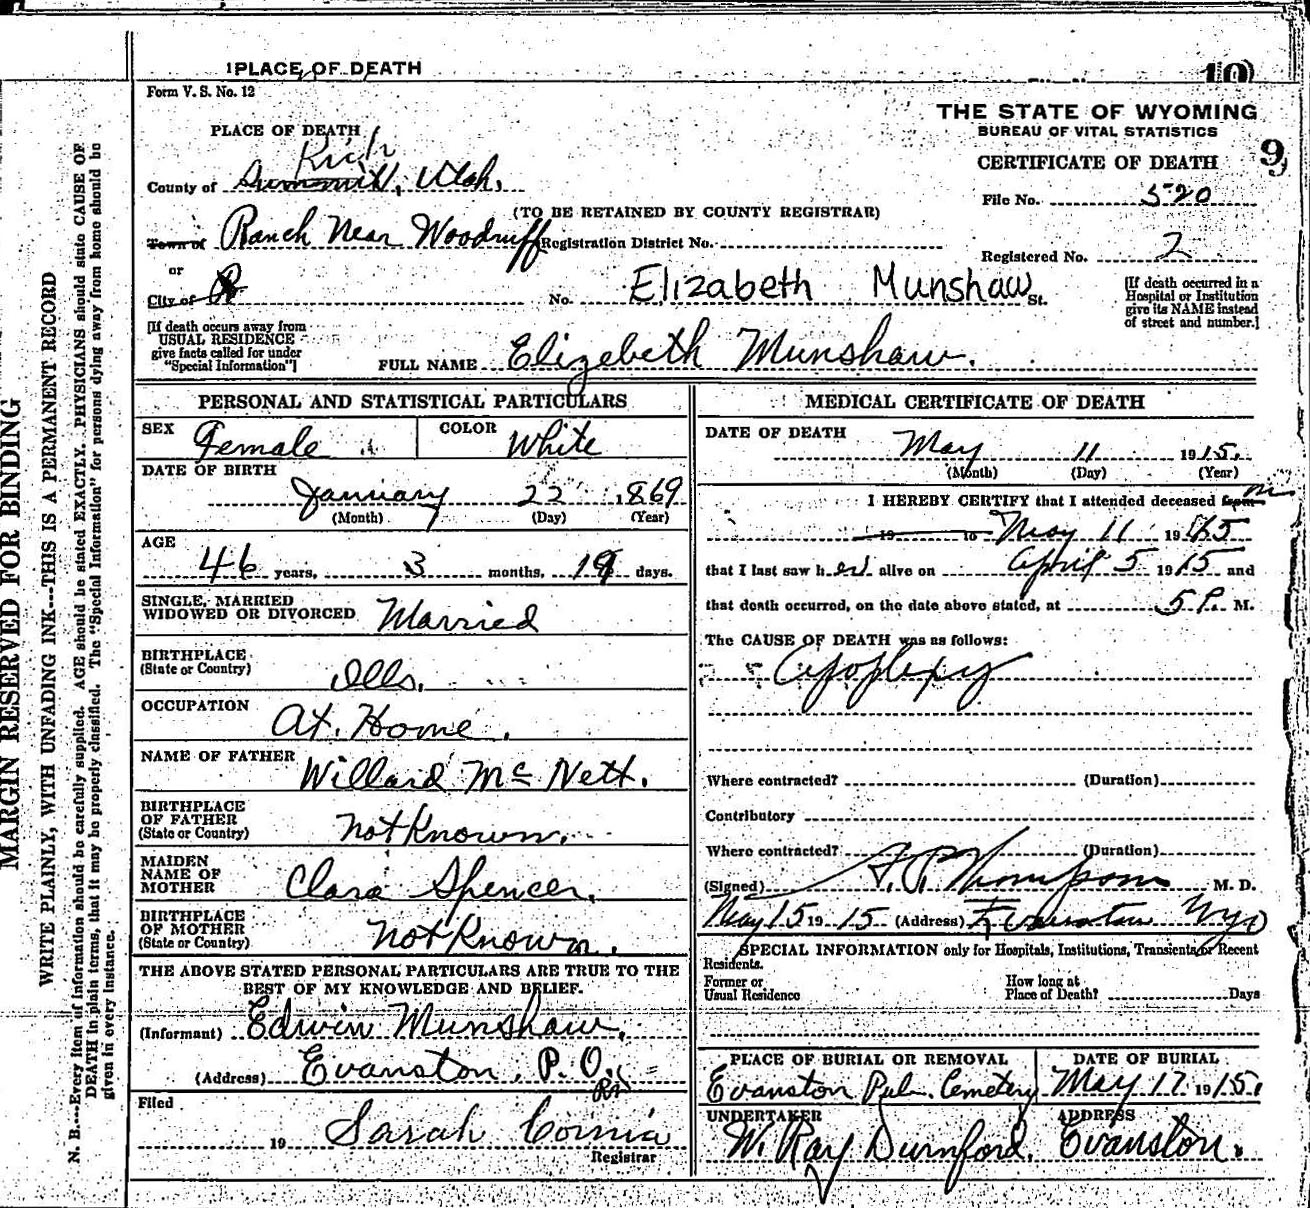 MARGIN RESERVED FOR BINDING
WRITE PLAINLY, WITH UNFADING INK---THIS IS A PERMANENT RECORD
N. B.---Every item of information should be carefully supplied. AGE should be stated EXACTLY. PHYSICIANS should state CAUSE OF
DEATH in plain terms, that it may be properly classified. The "Special Information" for persons dying away from home should be
given in every instance.
1 PLACE OF DEATH
10
Form V. S. No. 12
THE STATE OF WYOMING
BUREAU OF VITAL STATISTICS
CERTIFICATE OF DEATH
9
PLACE OF DEATH
Rich
County of Summit, Utah.
File No. 520
(TO BE RETAINED BY COUNTY REGISTRAR)
Town of Ranch Near Woodruff Registration District No.
Registered No. 2
or
City of R No. Elizabeth Munshaw St.
[If death occurred in a
Hospital or Institution
give its NAME instead
of street and number.]
[If death occurs away from
USUAL RESIDENCE
give facts called for under
"Special Information"]
FULL NAME Elizebeth Munshaw.
PERSONAL AND STATISTICAL PARTICULARS
SEX Female COLOR White
DATE OF BIRTH
January 22, 1869
(Month) (Day) (Year)
AGE
46 years, 3 months, 19 days.
SINGLE, MARRIED
WIDOWED OR DIVORCED Married
BIRTHPLACE
(State or Country) Ills.
OCCUPATION At. Home.
NAME OF FATHER Willard Mc Nett.
BIRTHPLACE
OF FATHER
(State or Country) not Known.
MAIDEN
NAME OF
MOTHER Clara Spencer.
BIRTHPLACE
OF MOTHER
(State or Country) not Known.
THE ABOVE STATED PERSONAL PARTICULARS ARE TRUE TO THE
BEST OF MY KNOWLEDGE AND BELIEF.
(Informant) Edwin Munshaw.
(Address) Evanston, P.O.
Filed
19 Sarah Cornia
Registrar
MEDICAL CERTIFICATE OF DEATH
DATE OF DEATH
May 11 1915.
(Month) (Day) (Year)
I HEREBY CERTIFY that I attended deceased from
19 to May 11 1915
that I last saw her alive on April 5 1915 and
that death occurred, on the date above stated, at 5 P. M.
The CAUSE OF DEATH was as follows:
Apoplexy
Where contracted? (Duration)
Contributory
Where contracted? (Duration)
(Signed) Thompson M. D.
May 15 1915 (Address) Evanston Wyo
SPECIAL INFORMATION only for Hospitals, Institutions, Transients or Recent
Residents.
Former or
Usual Residence
How long at
Place of Death? Days
PLACE OF BURIAL OR REMOVAL
Evanston Pub. Cemetery
DATE OF BURIAL
May 17 1915.
UNDERTAKER
W. Ray Durnford.
ADDRESS
Evanston.